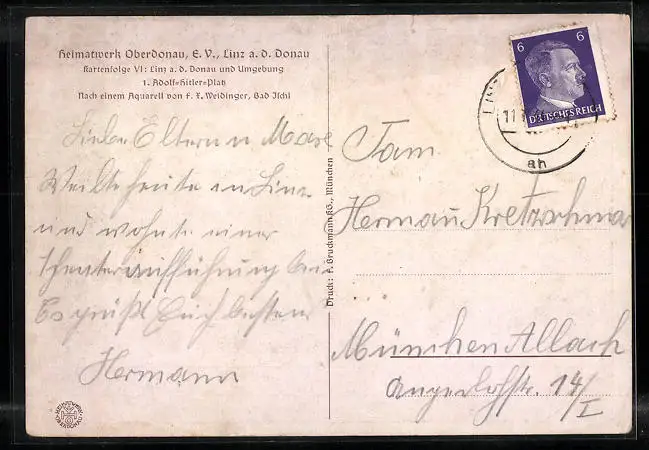 Heimatwerk Oberdonau, E. V., Linz a. d. Donau
Kartenfolge VI: Linz a. d. Donau und Umgebung
1. Adolf-Hitler-Platz
Nach einem Aquarell von F. X. Weidinger, Bad Ischl
Liebe Eltern u
Weilte heute in Linz
und wohnte einer
Theateraufführung bei
Es grüßt Euch bestens
Hermann
Druck: F. Bruckmann KG., München
6 6
DEUTSCHES REICH
LIN
11
ah
Fam
Hermann Kretzschmar
München Allach
Angerlohstr. 14/I